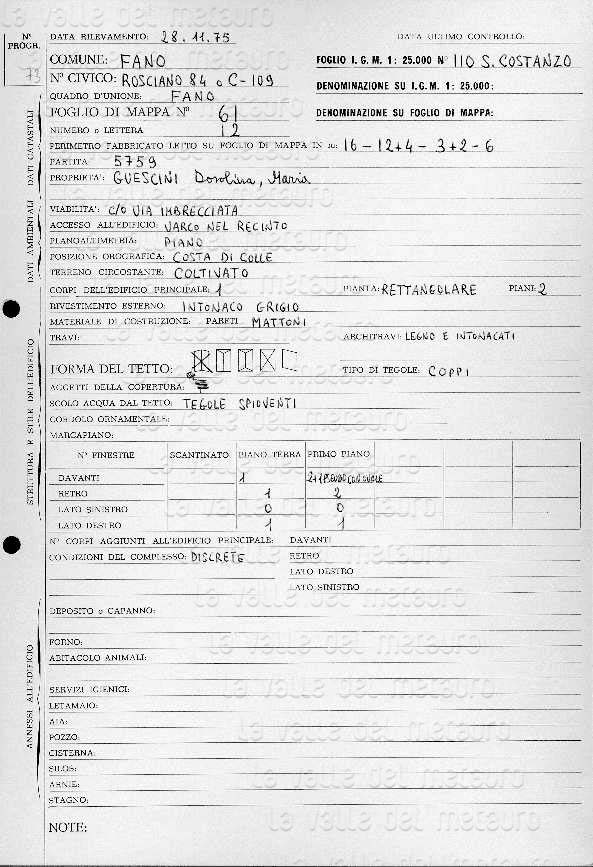 Nº PROGR. 73
DATA RILEVAMENTO: 28.11.75 DATA ULTIMO CONTROLLO:
COMUNE: FANO FOGLIO I.G.M. 1: 25.000 Nº 110 S. COSTANZO
Nº CIVICO: ROSCIANO 84 o C-109 DENOMINAZIONE SU I.G.M. 1: 25.000:
QUADRO D'UNIONE: FANO
FOGLIO DI MAPPA Nº 61 DENOMINAZIONE SU FOGLIO DI MAPPA:
NUMERO o LETTERA 12
PERIMETRO FABBRICATO LETTO SU FOGLIO DI MAPPA IN m: 16-12+4-3+2-6
PARTITA 5759
PROPRIETA': GUESCINI Dorolina, Maria
VIABILITA': C/O VIA IMBRECCIATA
ACCESSO ALL'EDIFICIO: VARCO NEL RECINTO
PLANOALTIMETRIA: PIANO
POSIZIONE OROGRAFICA: COSTA DI COLLE
TERRENO CIRCOSTANTE: COLTIVATO
CORPI DELL'EDIFICIO PRINCIPALE: 1 PIANTA: RETTANGOLARE PIANI: 2
RIVESTIMENTO ESTERNO: INTONACO GRIGIO
MATERIALE DI COSTRUZIONE: PARETI MATTONI
TRAVI: ARCHITRAVI: LEGNO E INTONACATI
FORMA DEL TETTO: TIPO DI TEGOLE: COPPI
AGGETTI DELLA COPERTURA:
SCOLO ACQUA DAL TETTO: TEGOLE SPIOVENTI
CORDOLO ORNAMENTALE:
MARCAPIANO:
Nº FINESTRE SCANTINATO PIANO TERRA PRIMO PIANO
DAVANTI 1
RETRO 1 2
LATO SINISTRO 0 0
LATO DESTRO 1 1
Nº CORPI AGGIUNTI ALL'EDIFICIO PRINCIPALE: DAVANTI
CONDIZIONI DEL COMPLESSO: DISCRETE RETRO
LATO DESTRO
LATO SINISTRO
DEPOSITO o CAPANNO:
FORNO:
ABITACOLO ANIMALI:
SERVIZI IGIENICI:
LETAMAIO:
AIA:
POZZO:
CISTERNA:
SILOS:
ARNIE:
STAGNO:
NOTE:
DATI CATASTALI
DATI AMBIENTALI
STRUTTURA E STILE DELL'EDIFICIO
ANNESSI ALL'EDIFICIO
La valle del metauro